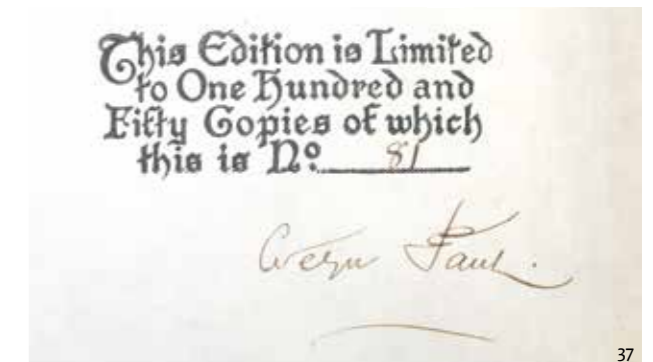 This Edition is Limited
to One Hundred and
Fifty Copies of which
this is Nº 81
Evelyn Paul.
37